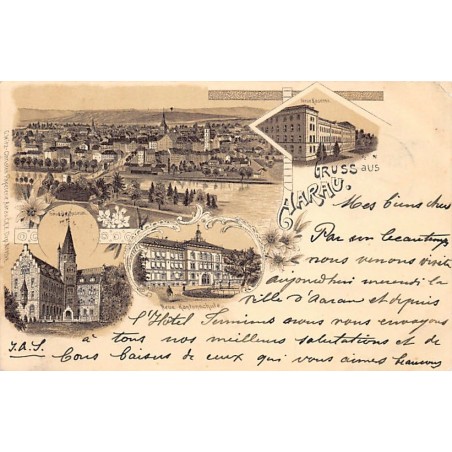 GRUSS AUS
AARAU.
Neue Kantonsschule
Mes biens cher
Par un beau temps
nous venons visite
aujourd'hui mercredi la
ville d'Aarau et depuis
l'Hôtel nous vous envoyons
à tous nos meilleurs salutations et de
bons baisers de ceux qui vous aimes beaucoup
J.A.S.